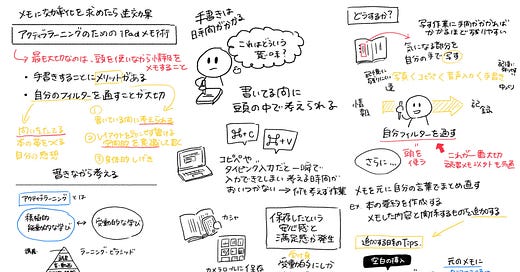 メモに効率化を求めたら逆効果
アクティブラーニングのための iPadメモ術
最も大切なのは、頭を使いながら情報を
メモすること
・手書きすることにメリットがある
・自分のフィルターを通すことが大切
① 書いている間に考えられる
③身体的
本の要約を
自分の感想
書きながら考える
アクティブラーニング とは
積極的
能動的な学び
受動的な学び
講義
ラーニング・ピラミッド
手書きは
時間がかかる
これはどういう
意味?
書いてる間に
頭の中で考えられる
⌘+C
⌘+V
コピペや
タイピング入力だと一瞬で
入力できてしまい考える時間が
おいつかない→何も考えず作業
カシャ
カメラロールに保存
保存したという
安心感と
満足感が発生
受動的にしか
どうするか?
写す作業に手間がかかれば
かかるほど残りやすい
気になる部分を
自分の手で写す
記憶に
残りにくい
写真<コピペ<音声入力<手書き
記憶に
速
情報
記録
自分フィルターを通す
さらに…
頭を
使う
これが一番大切
メモを元に自分の言葉でまとめ直す
Ex. 本の要約を作成する
メモした内容と関係するものを追加する
追加する時のTips.
空白の挿入
元のメモに